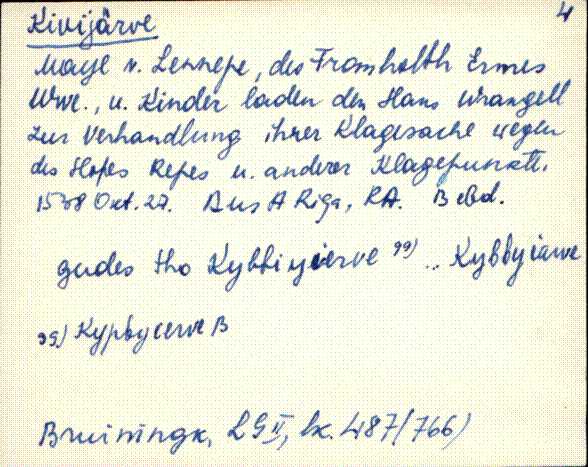 4
Kivijärve
Maye v. Lennepe, des Fromholth Ermes
Wwe., u. Kinder laden den Hans Wrangell
zur Verhandlung ihrer Klagesache wegen
des Hofes Repes u. anderer Klagepunkte.
1538 Okt. 27. Aus A Riga, RA. B ebd.
gudes tho Kybbiyierve 99) .. Kybbyiarve
99) Kypbyerve B
Bruiningk, LG II, lk. 487 (766)